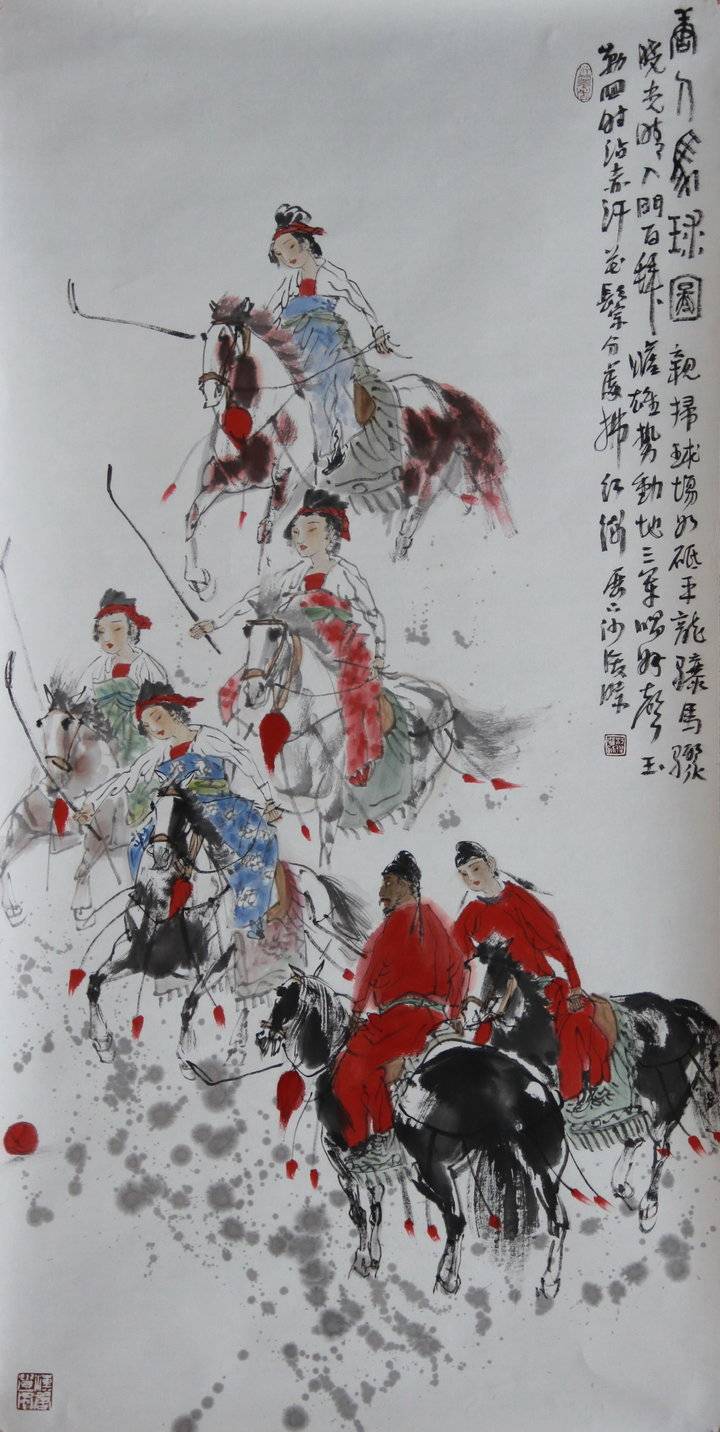 唐人馬球圖 親掃球場如砥平龍驤馬驟
曉光晴入門百拜瞻雄勢動地三軍唱好聲玉
勒回时沾赤汗花鬃分處拂红缨